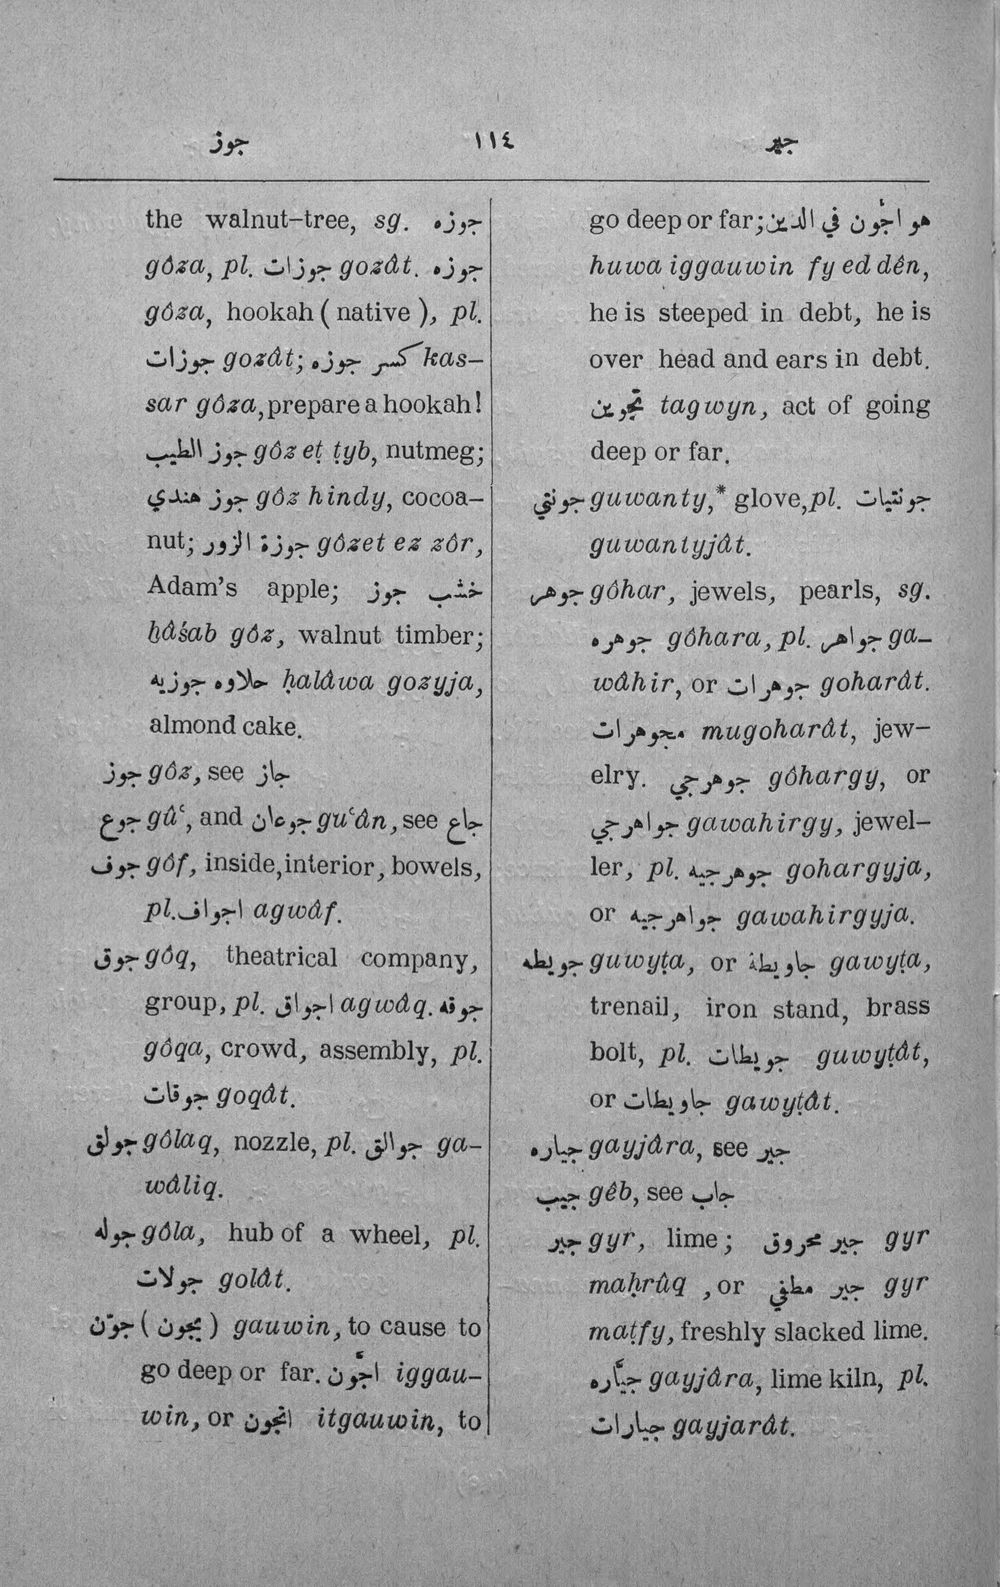 جوز ١١٤ جير
the walnut-tree, sg. جوزه
gôza, pl. جوزات gozât. جوزه
gôza, hookah ( native ), pl.
جوزات gozât; كسر جوزه kas-
sar gôza, prepare a hookah!
جوز الطيب gôz eṭ ṭyb, nutmeg;
جوز هندي gôz hindy, cocoa-
nut; جوزة الزور gôzet ez zôr,
Adam's apple; خشب جوز
ḫâśab gôz, walnut timber;
حلاوه جوزيه ḥalâwa gozyja,
almond cake.
جوز gôz, see جاز
جوع gûʿ, and جوعان guʿân, see جاع
جوف gôf, inside, interior, bowels,
pl. اجواف agwâf.
جوق gôq, theatrical company,
group, pl. اجواق agwâq. جوقه
gôqa, crowd, assembly, pl.
جوقات goqât.
جولق gôlaq, nozzle, pl. جوالق ga-
wâliq.
جوله gôla, hub of a wheel, pl.
جولات golât.
جوّن ( يجون ) gauwin, to cause to
go deep or far. اجّون iggau-
win, or اتجون itgauwin, to
go deep or far; هو اجّون في الدين
huwa iggauwin fy ed dên,
he is steeped in debt, he is
over head and ears in debt.
تجوين tagwyn, act of going
deep or far.
جونتي guwanty,* glove, pl. جونتيات
guwantyjât.
جوهر gôhar, jewels, pearls, sg.
جوهره gôhara, pl. جواهر ga-
wâhir, or جوهرات goharât.
مجوهرات mugoharât, jew-
elry. جوهرجي gôhargy, or
جواهرجي gawahirgy, jewel-
ler, pl. جوهرجيه gohargyja,
or جواهرجيه gawahirgyja.
جويطه guwyṭa, or جاويطة gawyṭa,
trenail, iron stand, brass
bolt, pl. جويطات guwyṭât,
or جاويطات gawyṭât.
جياره gayjâra, see جير
جيب gêb, see جاب
جير gyr, lime; جير محروق gyr
maḥrûq , or جير مطفي gyr
maṭfy, freshly slacked lime.
جيّاره gayjâra, lime kiln, pl.
جيارات gayjarât.